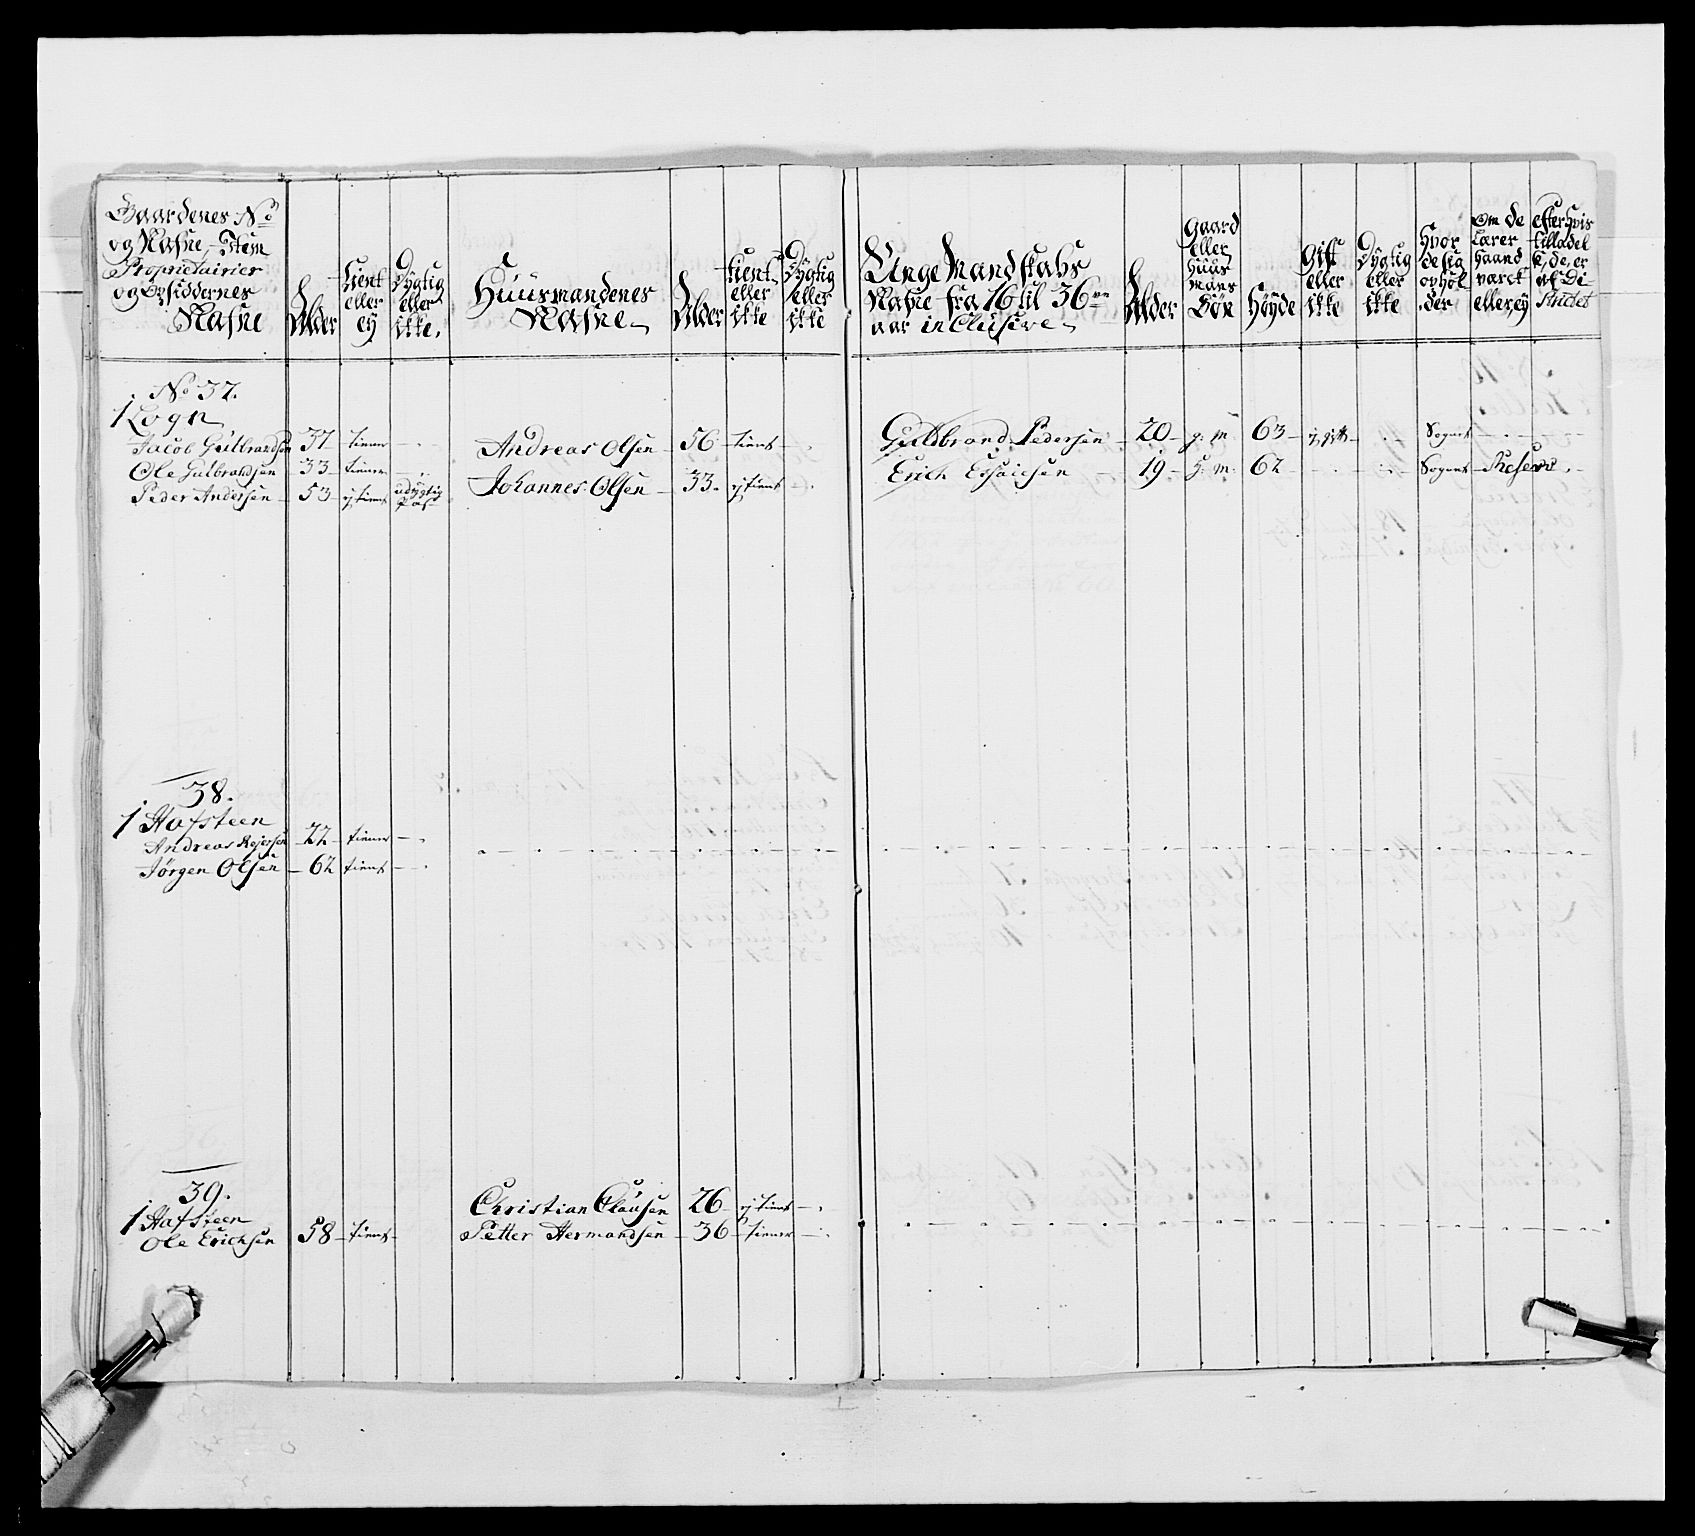 Gaardenes No
og Nafne - Item
Proprietairier
og Opsiddernes
Nafne
Alder
tient
eller
ey
Dygtig
eller
ikke.
Huusmandenes
Nafne
Alder
tient
eller
ikke
Dygtig
eller
ikke
Unge Mandskabs
Nafne fra 16 til 36
aar inclusive
Alder
Gaard
eller
huus
mans
Søn
Høyde
Gift
eller
ikke
Dygtig
eller
ikke
Hvor
de sig
ophol
der
Om de
Lærer
haand
værck
eller ey
efter hvis
tilladel
se, de er
af Di
strictet
No 37.
1 Rogn
Jacob Gulbrandsen 37 tiener
Ole Gulbrandsen 33 tiener
Peder Andersen - 53 ej tient udygtig
Pas
Andreas Olsen - 56 - tient
Johannes Olsen - 33 - ej tient
Guldbrand Pedersen - 20 - g: m: 63 - ej gift Sognet
Erich Esaiesen - 19 - h: m: 62 Sognet - Reserv
38.
1 Hafsteen
Andreas Rejersen 22 tiener
Jørgen Olsen - 62 tient
39.
1 Hafsteen
Ole Erichsen 58 - tient
Christian Clausen 26 - ej tient
Petter Hermandsen - 36 - tiener